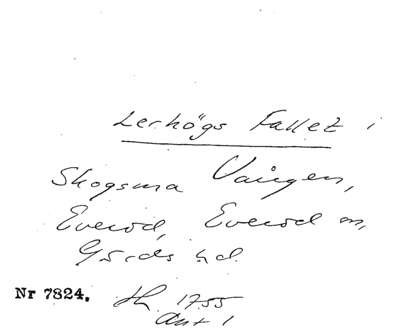 Lerhögs Fallet i
Skogsma Vången,
Everöd, Everöd sn,
Gärds hd
Nr 7824. Sk. 1755
Akt 1